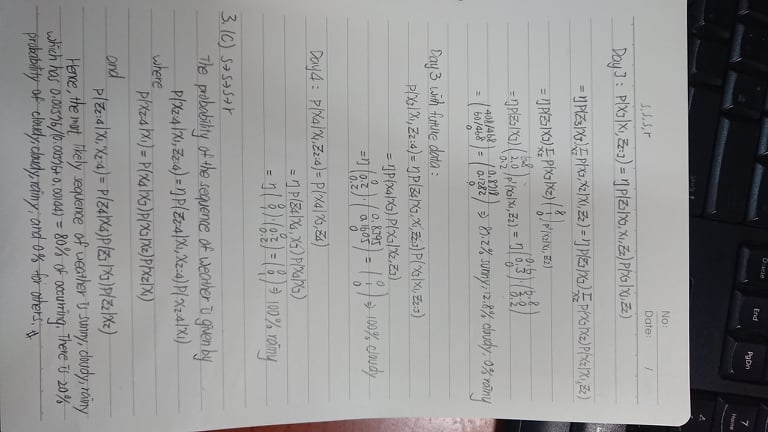 Delete
End
PgDn
7
Home
4
No:
Date: /
s,s,s,r
Day3: P(x3|x1,z2:3) = ηP(z3|x3,x1,z2)P(x3|x1,z2)
= ηP(z3|x3) Σ x2 P(x3,x2|x1,z2) = ηP(z3|x3) Σ x2 P(x3|x2)P(x2|x1,z2)
= ηP(z3|x3) Σ x2 P(x3|x2) (8 1 0) P'(x2|x1,z2)
= ηP(z3|x3) (6.8 2.0 0.2) P'(x3|x1,z2) = η (0.6 0.3 0) · (6.8 2.0 0.2)
= (408/468 60/468 0) = (0.8718 0.1282 0) ⇒ 87.2% sunny, 12.8% cloudy, 0% rainy
Day3 with future data:
P(x3|x1,z2:4) = ηP(z4|x3,x1,z2:3)P(x3|x1,z2:3)
= ηP(x4|x3)P(x3|x2,z3)
= η (0 0.2 0.2) · (0.8395 0.1605 0) = (0 1 0) ⇒ 100% cloudy
Day4: P(x4|x1,z2:4) = P(x4|x3,z4)
= ηP(z4|x4,x3)P(x4|x3)
= η (0 0 1) · (0 0.2 0.2) = (0 0 1) ⇒ 100% rainy
3. (c) s→s→s→r
The probability of the sequence of weather is given by
P(x2:4|x1,z2:4) = ηP(z2:4|x1,x2:4)P(x2:4|x1)
where
P(x2:4|x1) = P(x4|x3)P(x3|x2)P(x2|x1)
and
P(z2:4|x1,x2:4) = P(z4|x4)P(z3|x3)P(z2|x2)
Hence, the most likely sequence of weather is sunny, cloudy, rainy
which has 0.00576/(0.00576+0.00144) = 80% of occurring. There is 20%
probability of cloudy, cloudy, rainy, and 0% for others.